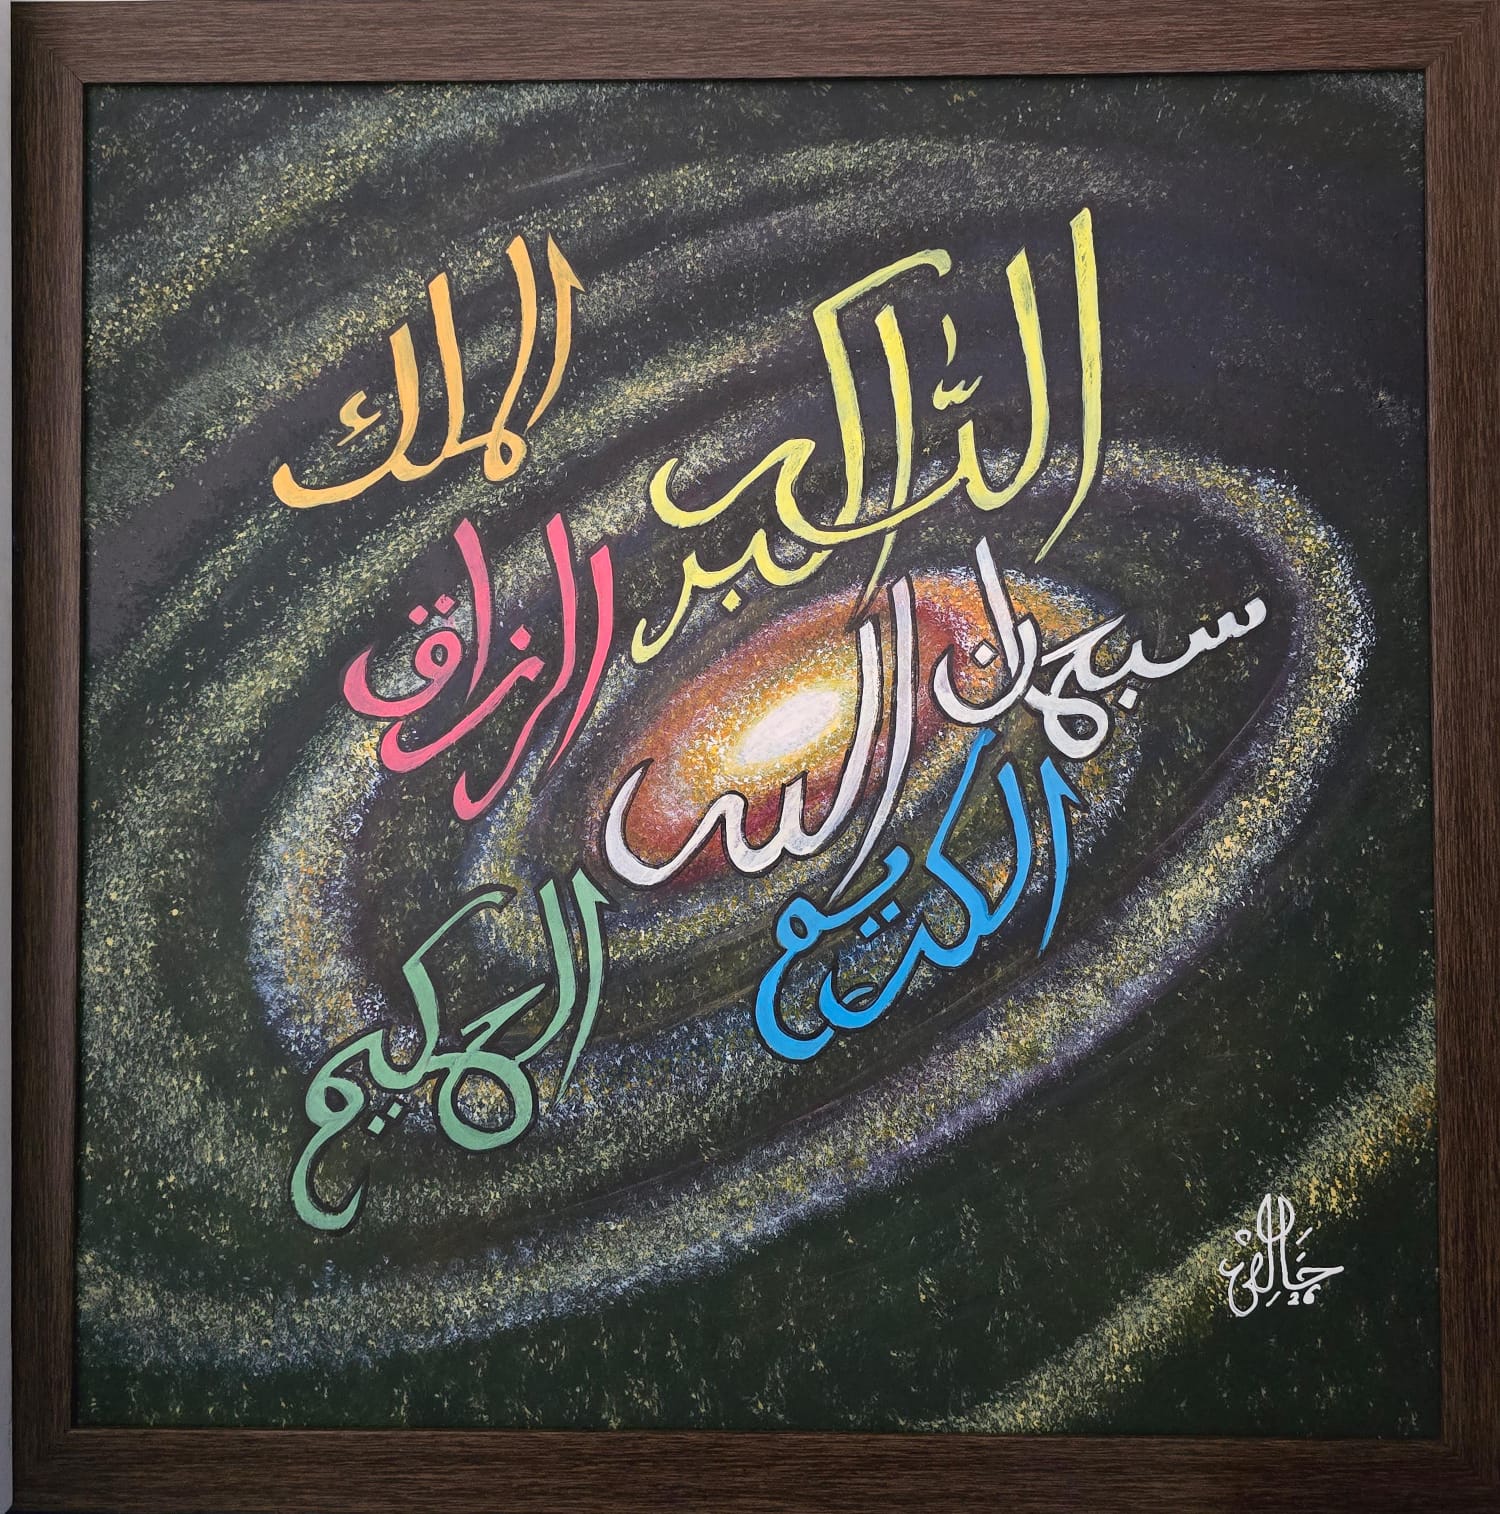 الملك
اللّٰه اكبر
الرزاق
سبحان
الله
الكريم
الحكيم
26